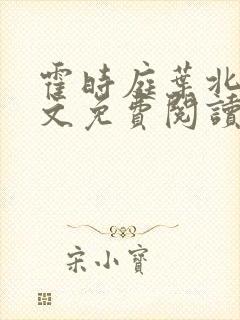 霍時庭葉北
文免費閱讀
宋小寶